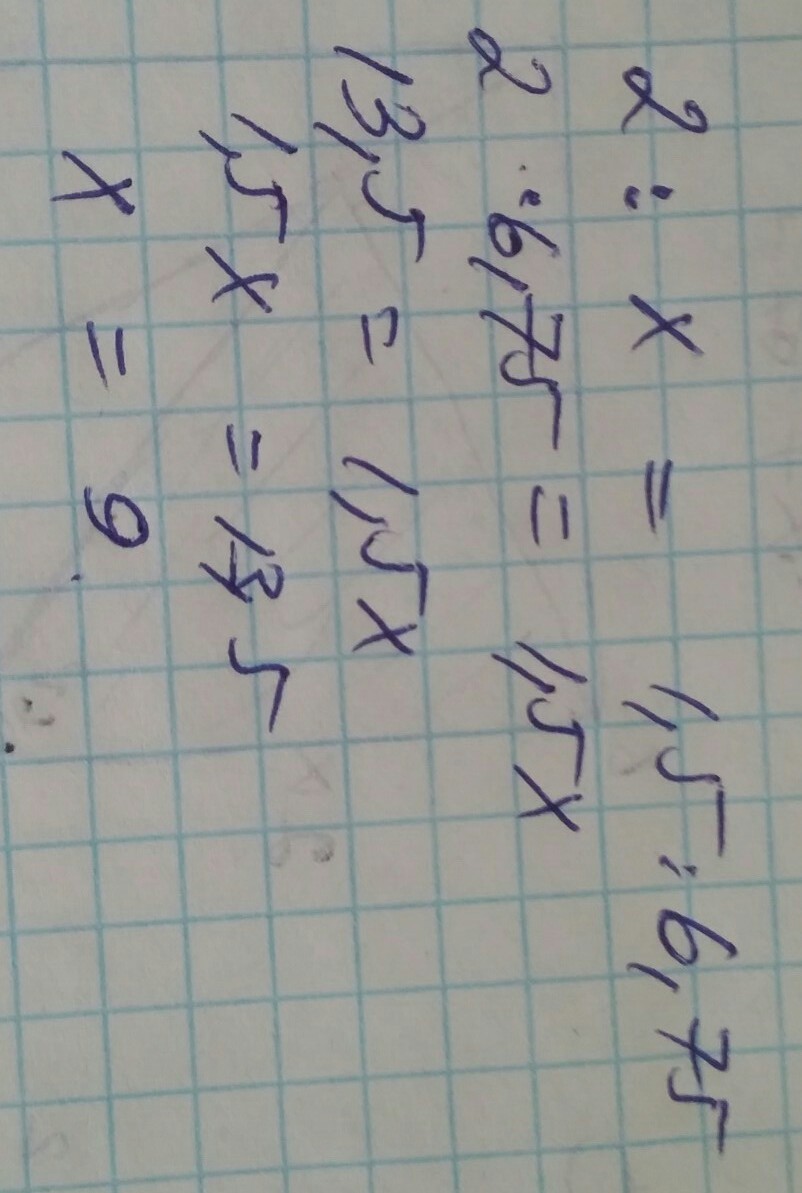 2 : x = 1,5 : 6,75
2 : 6,75 = 1,5x
13,5 = 1,5x
1,5x = 13,5
x = 9